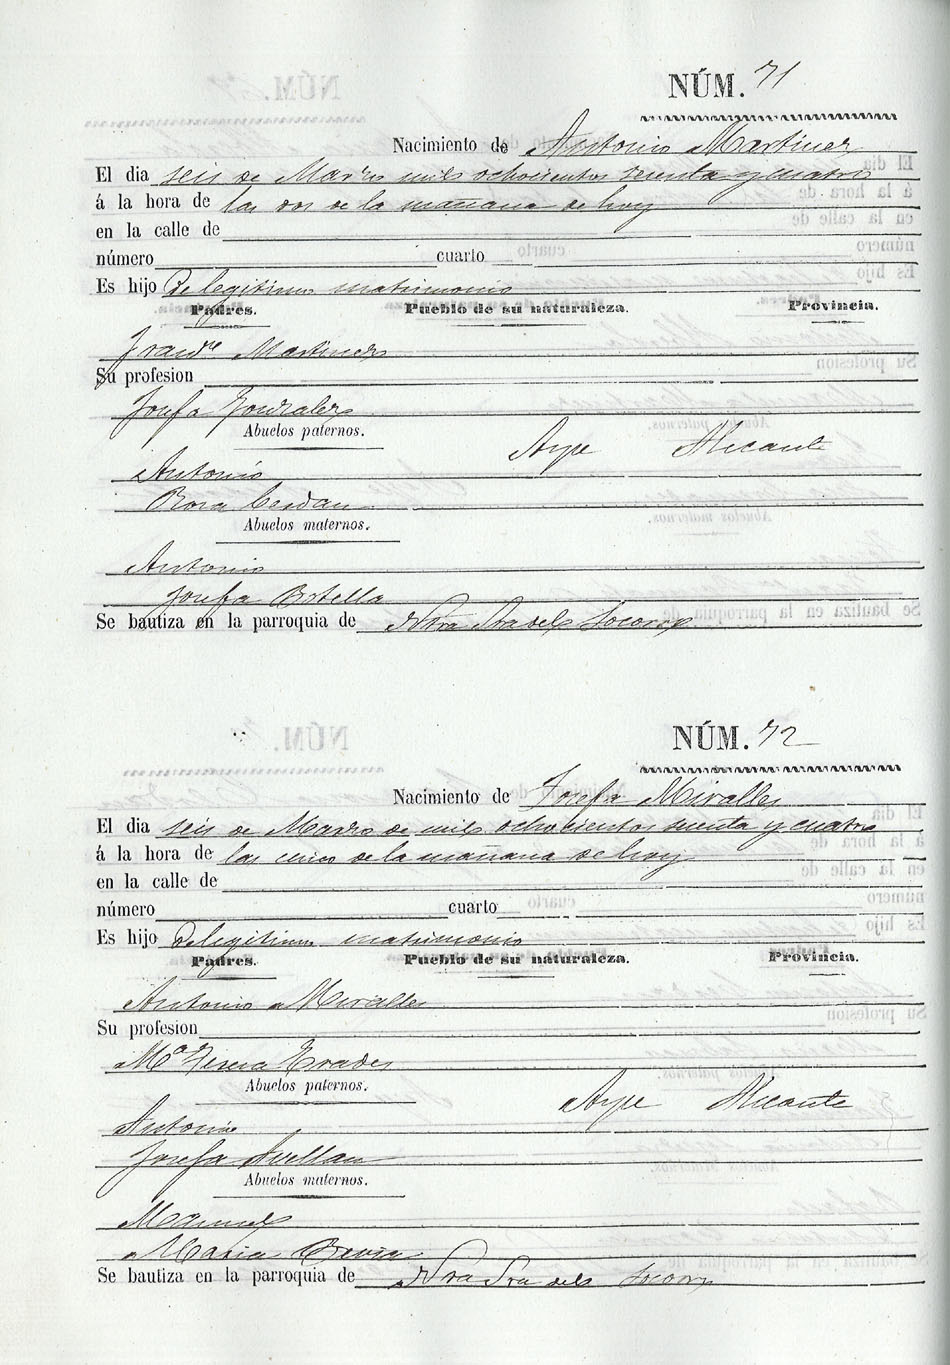 NÚM. 71
Nacimiento de Antonio Martinez
El dia seis de Marzo mil ochocientos sesenta y cuatro
á la hora de las dos de la mañana de hoy
en la calle de
número cuarto
Es hijo de legitimo matrimonio
Padres. Pueblo de su naturaleza. Provincia.
Martinez
Su profesion
Josefa Gonzalez
Abuelos paternos.
Aspe Alicante
Antonio
Rosa Cerdan
Abuelos maternos.
Antonio
Josefa Botella
Se bautiza en la parroquia de Ntra Sra del Socorro
NÚM. 72
Nacimiento de Josefa Miralles
El dia seis de Marzo de mil ochocientos sesenta y cuatro
á la hora de las cinco de la mañana de hoy
en la calle de
número cuarto
Es hijo de legitimo matrimonio
Padres. Pueblo de su naturaleza. Provincia.
Antonio Miralles
Su profesion
Mª Teresa Prades
Abuelos paternos.
Aspe Alicante
Antonio
Josefa Avellan
Abuelos maternos.
Manuel
Maria
Se bautiza en la parroquia de Ntra Sra del Socorro